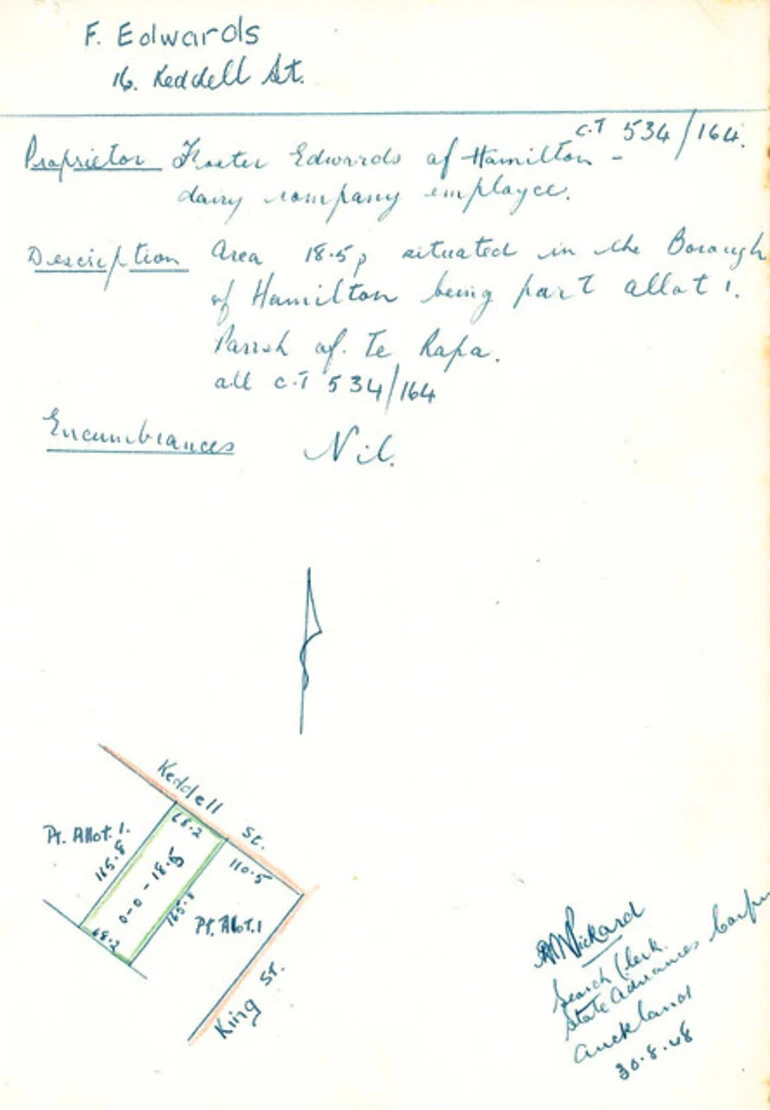 F. Edwards
16. Keddell St.
C.T 534/164.
Proprietor Foster Edwards of Hamilton -
dairy company employee.
Description Area 18.5p situated in the Borough
of Hamilton being part allot 1.
Parish of. Te Rapa.
all C.T 534/164
Encumbrances Nil.
Keddell St.
68.2
Pt. Allot. 1.
165.8
0-0-18.5
110.5
165.8
Pt. Allot. 1
68.2
King St.
Pickard
Search Clerk.
State Advances Corpn
Auckland
30.8.48